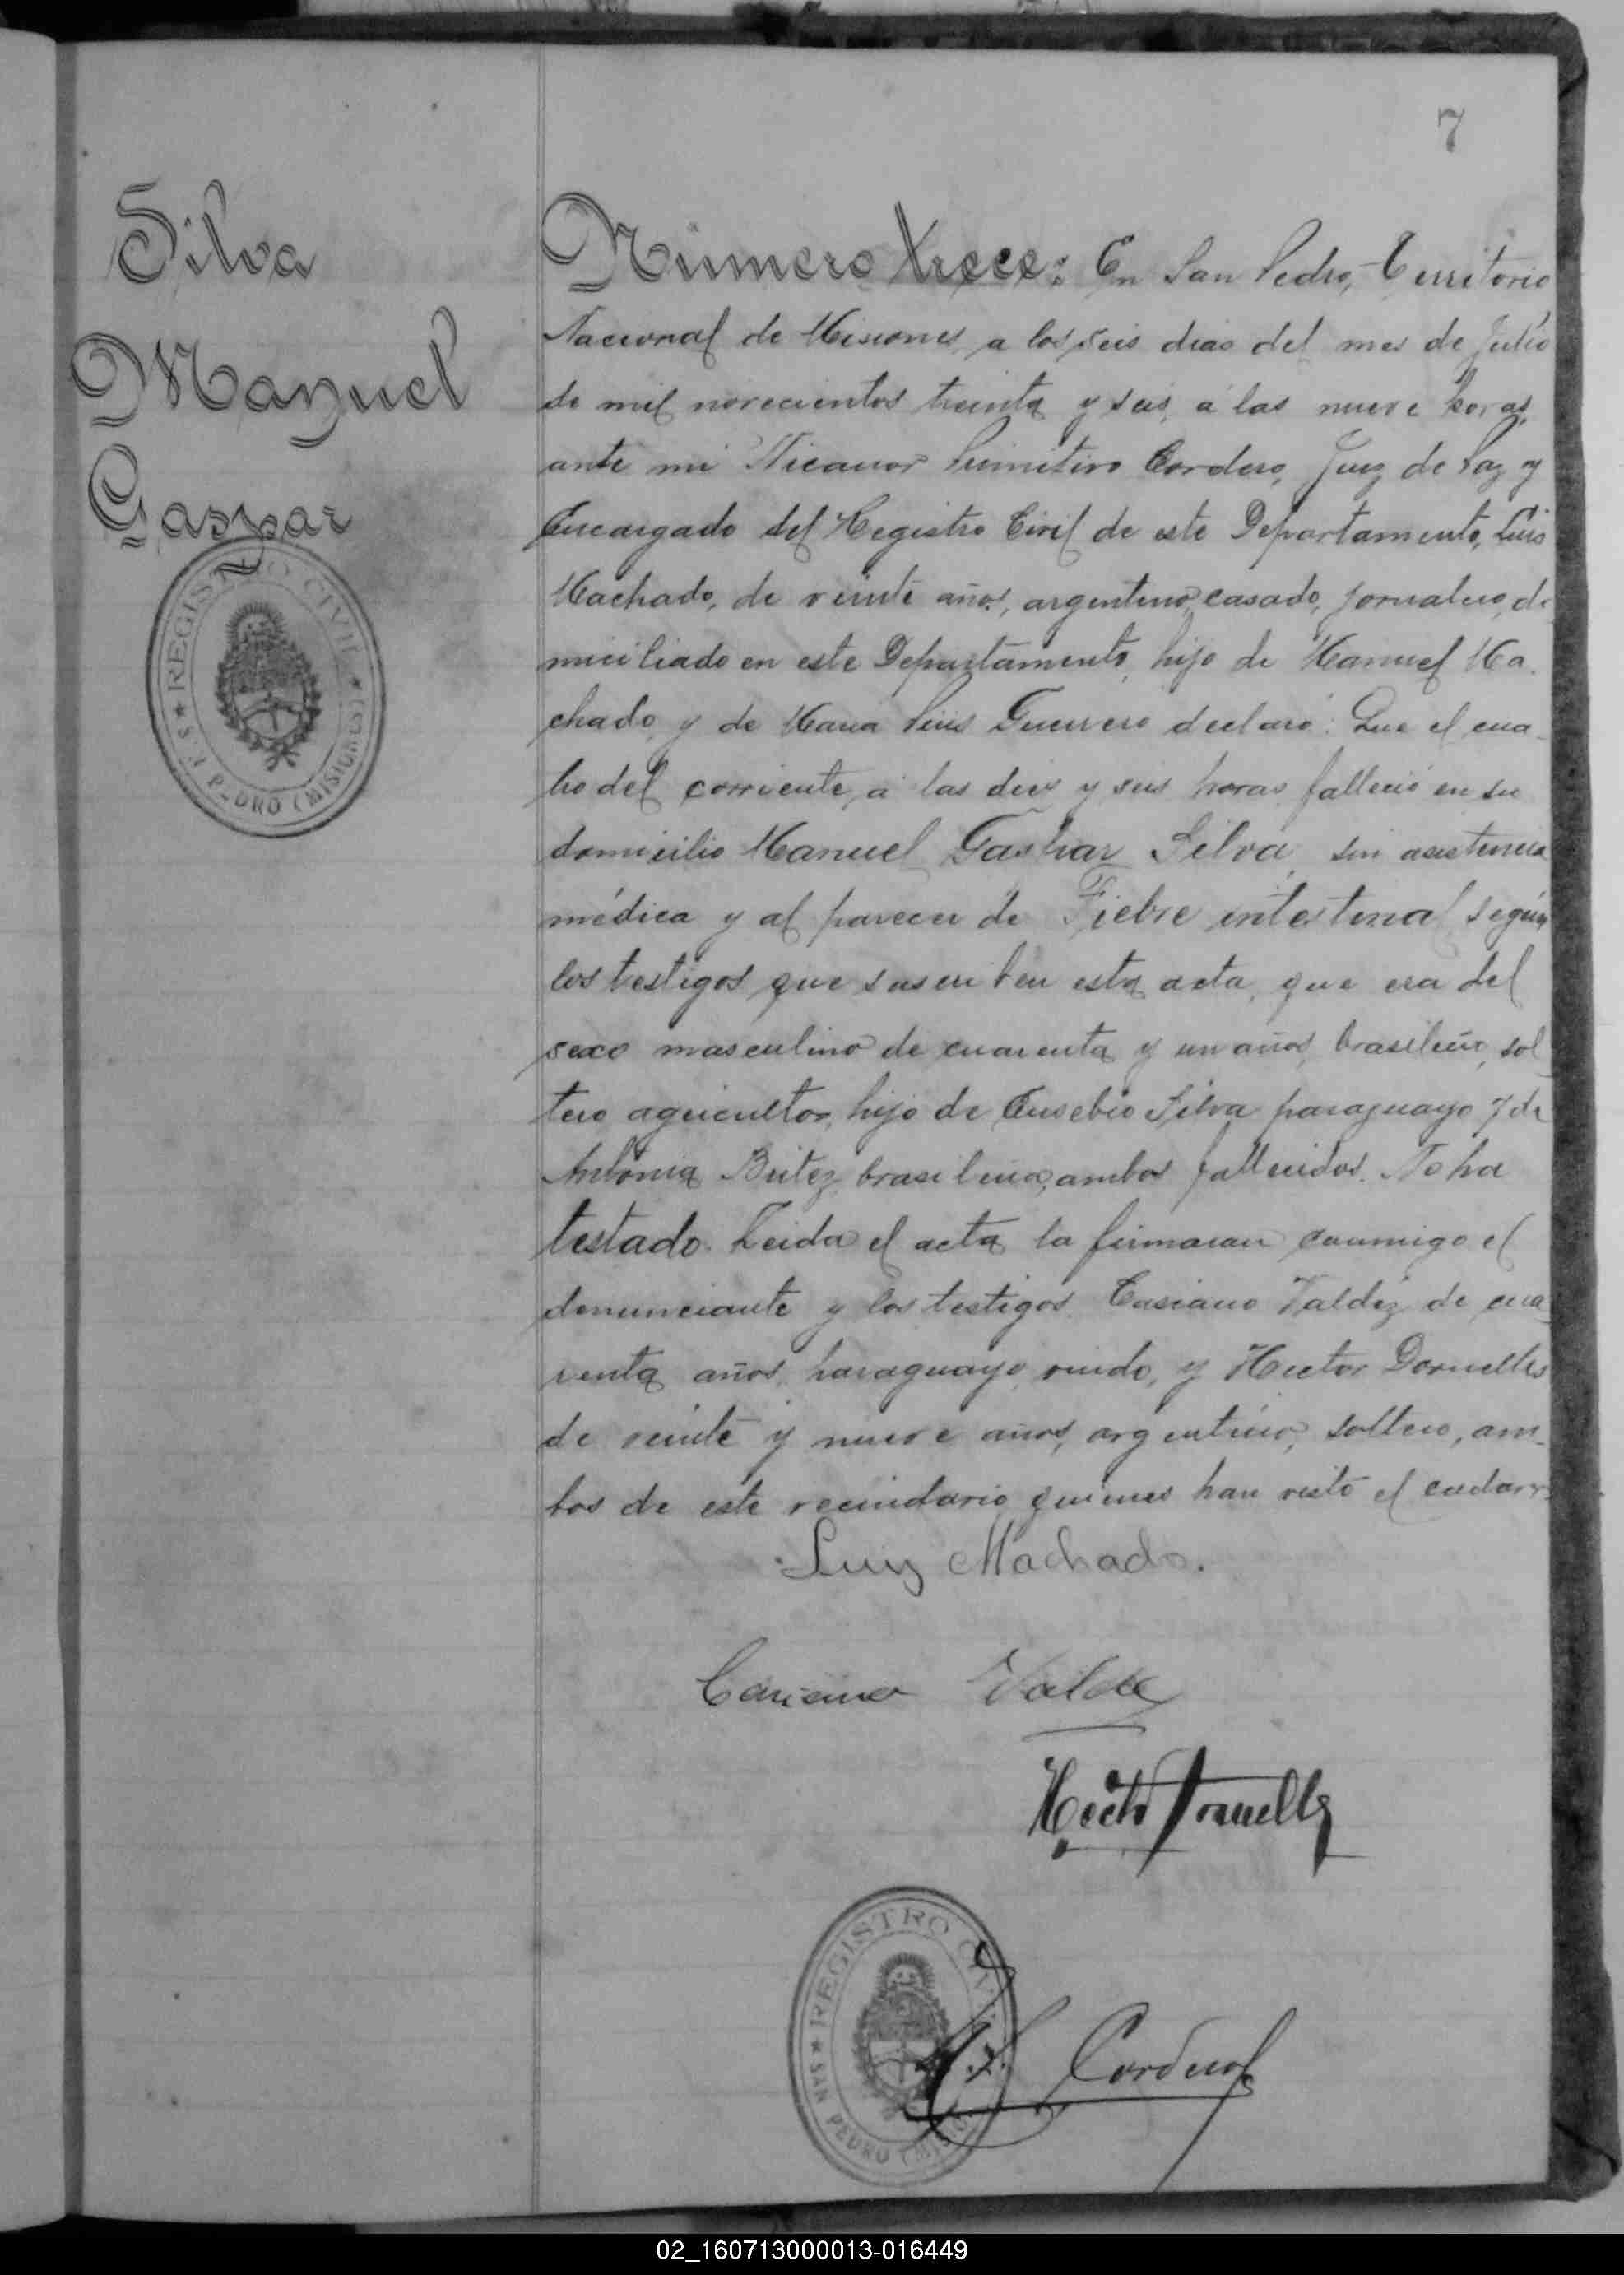 7
Silva
Manuel
Gaspar
REGISTRO CIVIL
SAN PEDRO (MISIONES)
Número trece: En San Pedro, Territorio
Nacional de Misiones, a los seis dias del mes de Julio
de mil novecientos treinta y seis, á las nueve horas,
ante mi Nicanor Primitivo Cordero, Juez de Paz y
Encargado del Registro Civil de este Departamento, Luis
Machado, de veinte años, argentino, casado, jornalero, do
miciliado en este Departamento, hijo de Manuel Ma
chado y de Maria Guerrero declaró: Que el cua
tro del corriente, á las diez y seis horas falleció en su
domicilio Manuel Gaspar Silva, sin asistencia
médica y al parecer de Fiebre intestinal según
los testigos que suscriben esta acta, que era del
sexo masculino de cuarenta y un años, brasileño, sol
tero agricultor, hijo de Eusebio Silva paraguayo y de
Antonia Beitez brasileña, ambos fallecidos. No ha
testado. Leida el acta la firmaran conmigo el
denunciante y los testigos Casiano Valdéz de cua
renta años, paraguayo, viudo, y Hector Dornelles
de veinte y nueve años, argentino, soltero, am-
bos de este vecindario quienes han visto el cadaver
Luiz Machado.
Casiano Valde
Hector Dornelles
REGISTRO CIVIL
SAN PEDRO (MISIO
Cordero